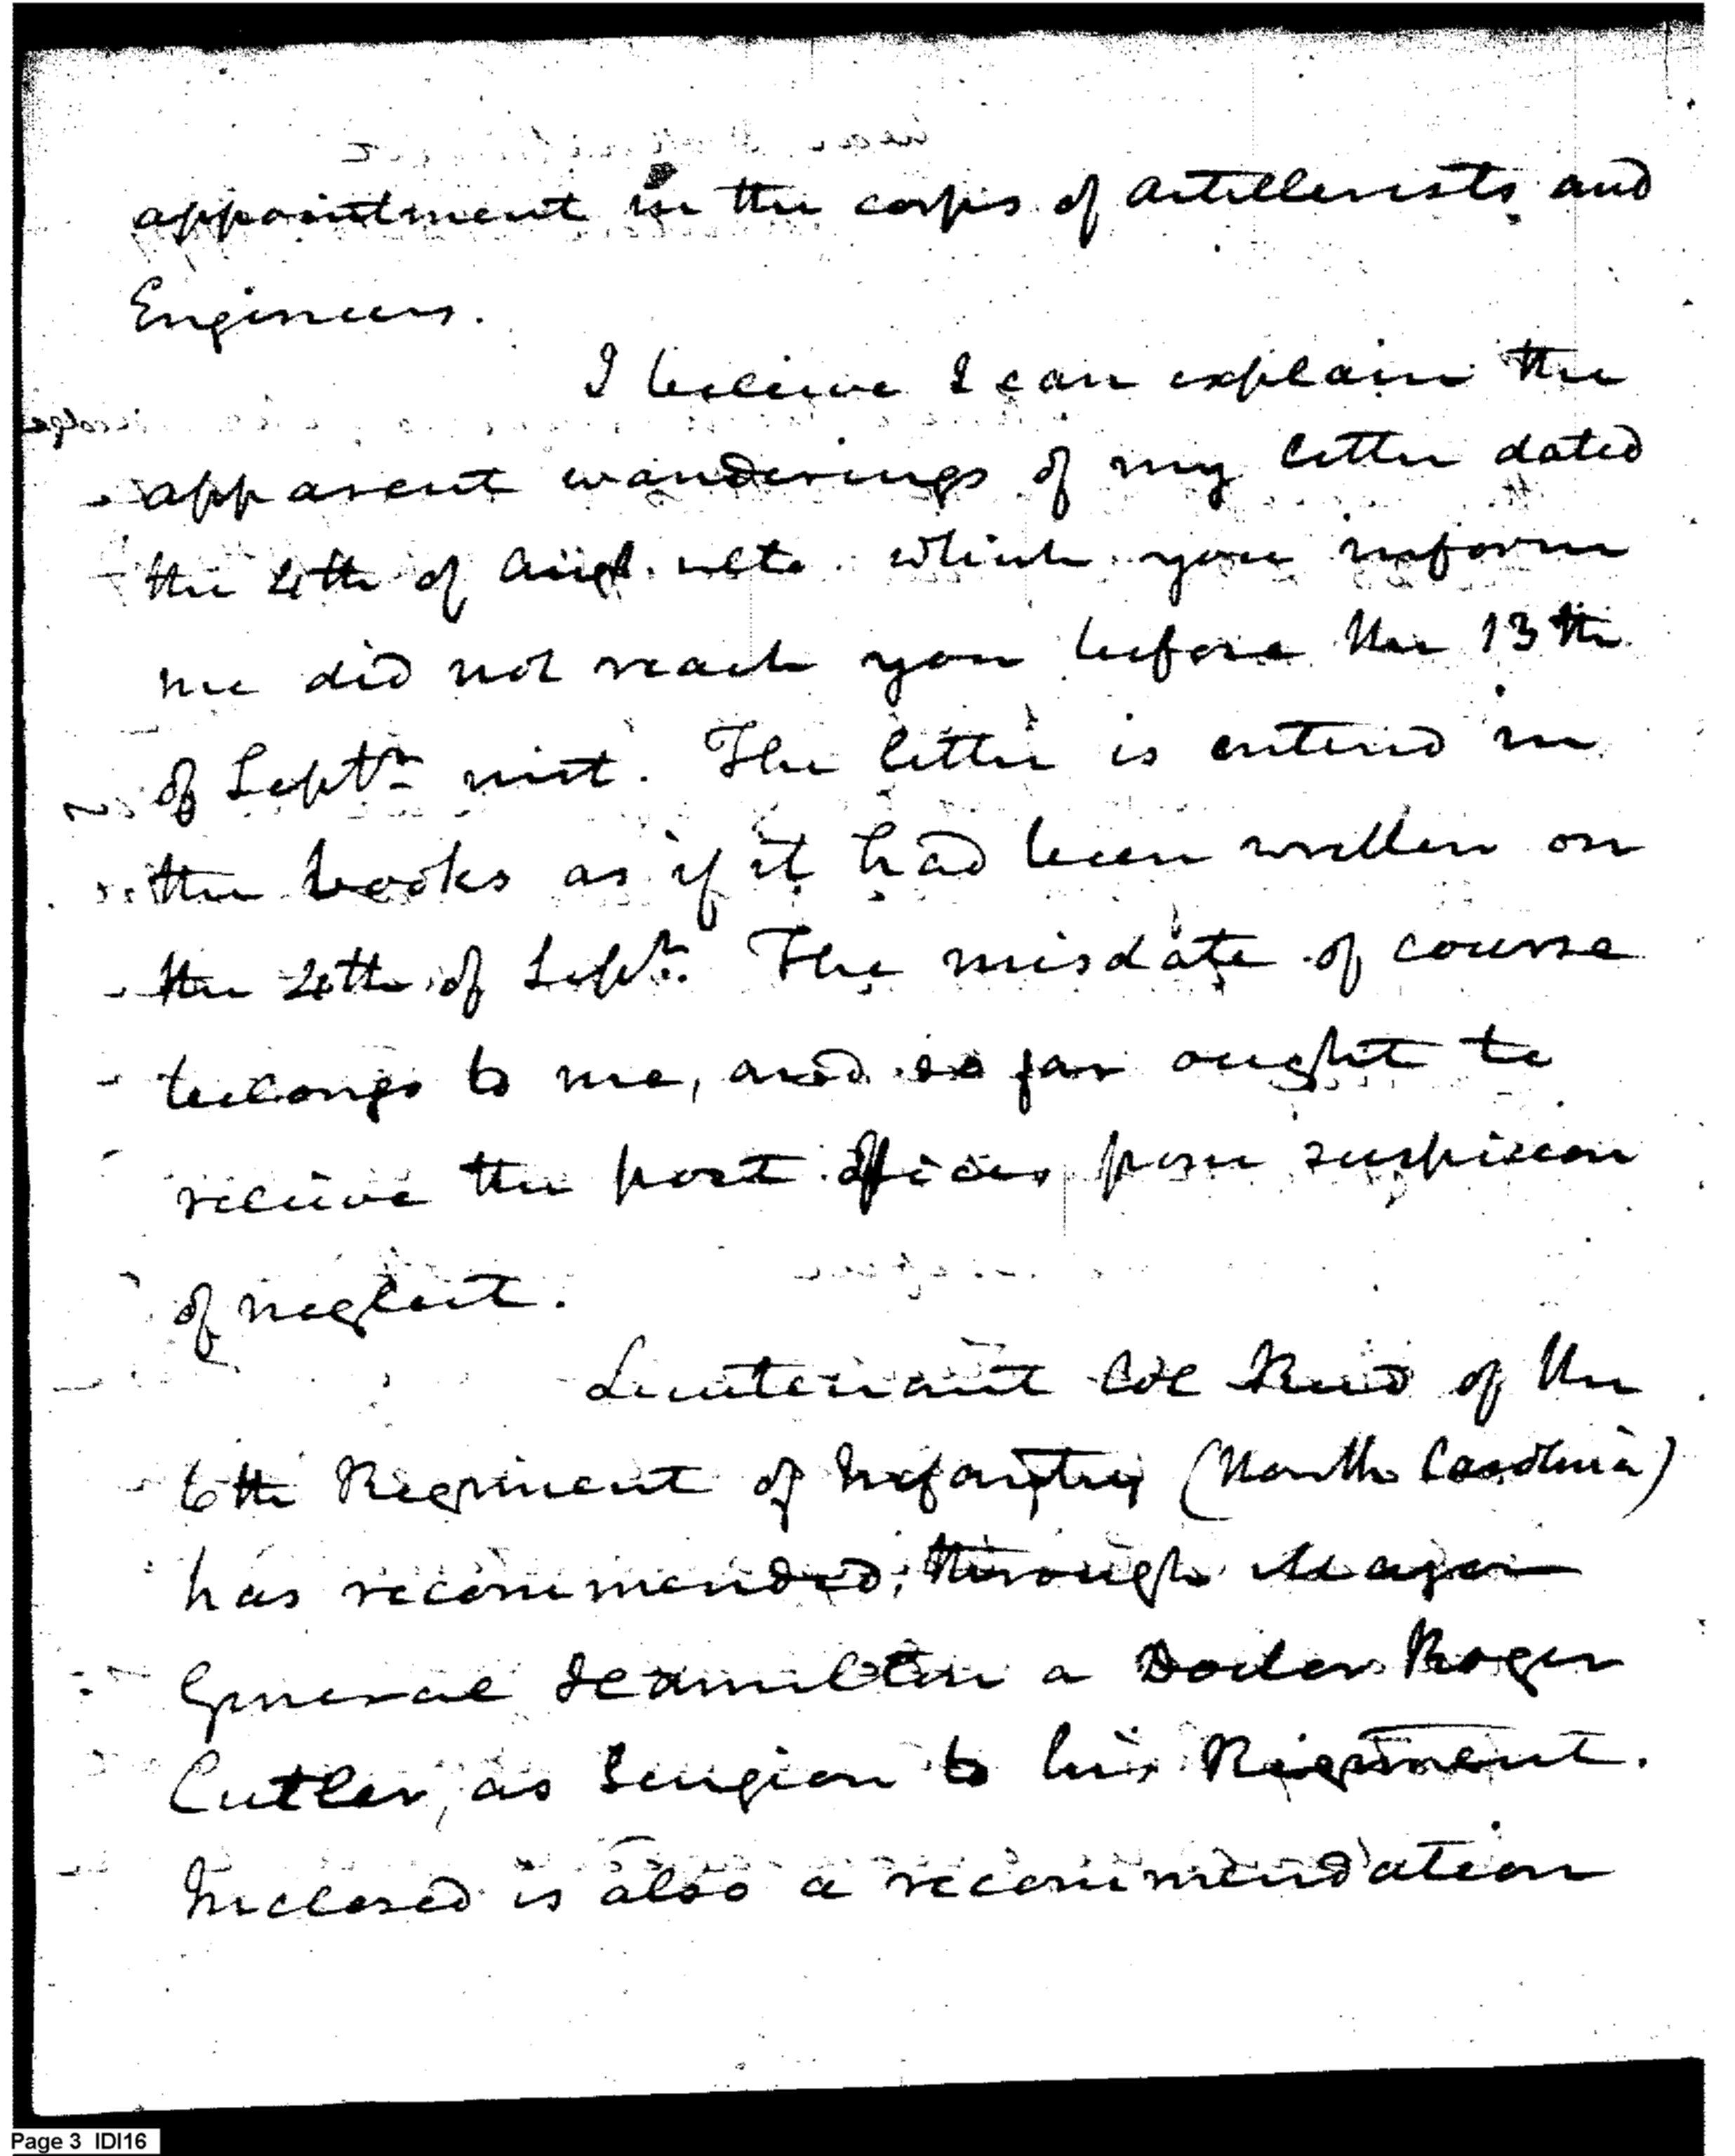 appointment in the corps of artillerists and
Engineers.
I believe I can explain the
apparent wanderings of my letter dated
the 4th of Augt. ulto. which you inform
me did not reach you before the 13th
of Septr inst. The letter is entered in
the books as if it had been written on
the 4th of Septr. The misdate of course
belongs to me, and so far ought to
relieve the post offices from suspicion
of neglect.
Lieutenant Col Read of the
6th Regiment of Infantry (North Carolina)
has recommended, through Major
General Hamilton a Doctor Roger
Cutler, as Surgeon to his Regiment.
Inclosed is also a recommendation
Page 3 IDI16